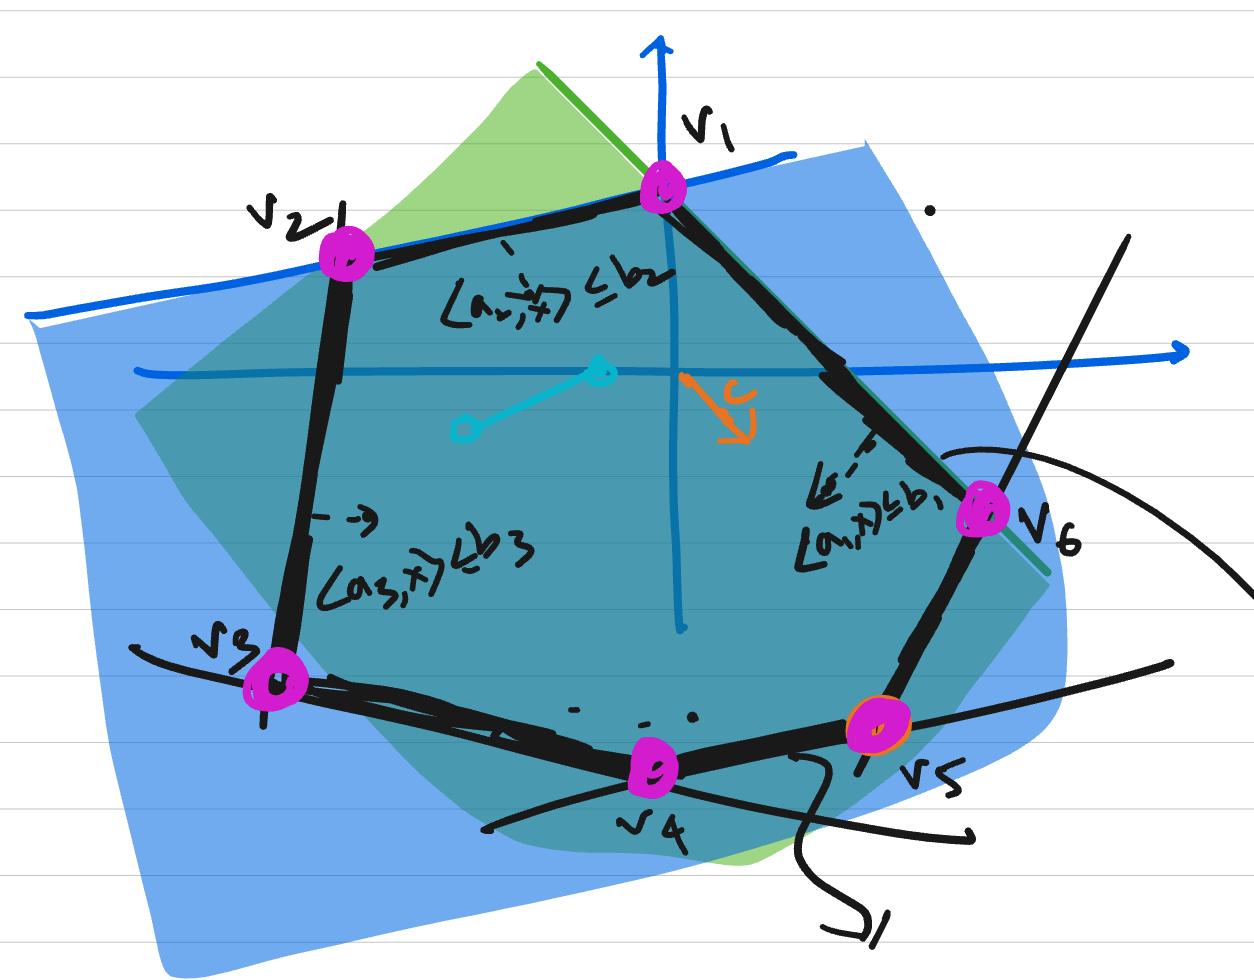 v1
v2
⟨a2, x⟩ ≤ b2
c
⟨a1, x⟩ ≤ b1
v6
⟨a3, x⟩ ≤ b3
v3
v5
v4